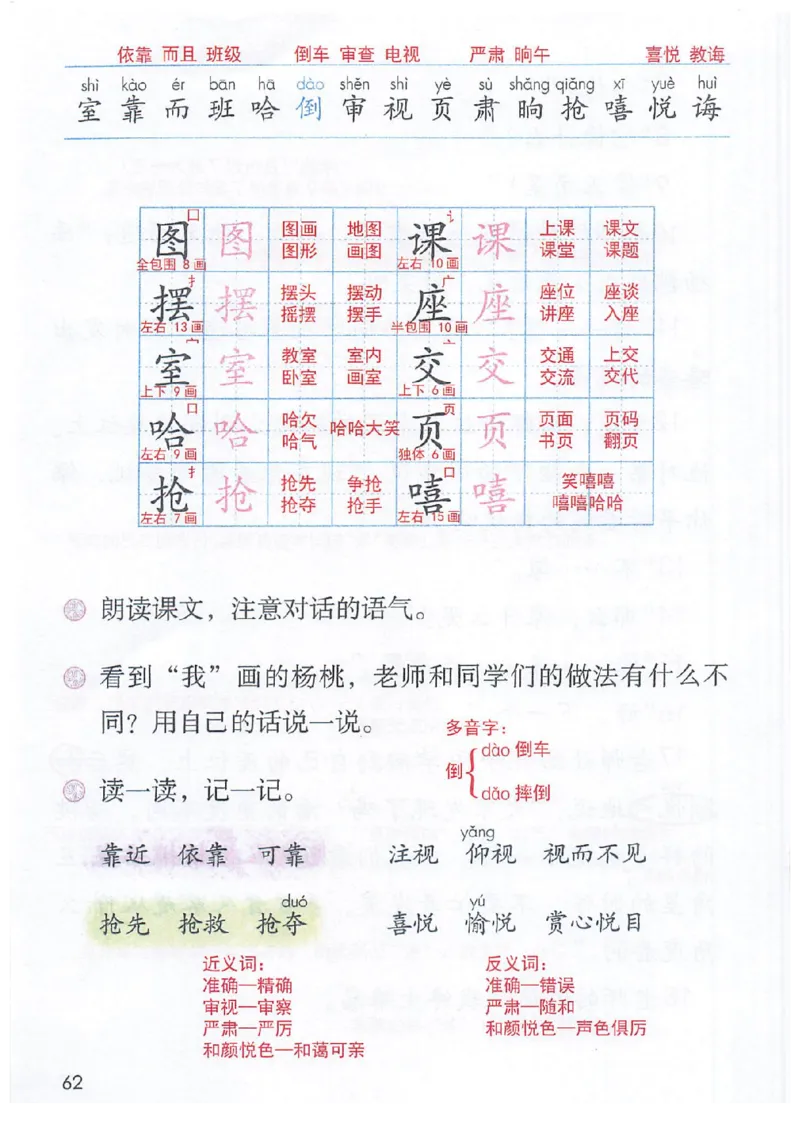 依靠 而且 班级 倒车 审查 电视 严肃 晌午 喜悦 教诲
shì kào ér bān hā dào shěn shì yè sù shǎng qiǎng xī yuè huì
室 靠 而 班 哈 倒 审 视 页 肃 晌 抢 嘻 悦 诲
口 讠
图 图 图画 地图 课 课 上课 课文
图形 画图 课堂 课题
全包围 8画 左右 10画
扌 广
摆 摆 摆头 摆动 座 座 座位 座谈
摇摆 摆手 讲座 入座
左右 13画 半包围 10画
宀 亠
室 室 教室 室内 交 交 交通 上交
卧室 画室 交流 交代
上下 9画 上下 6画
口 页
哈 哈 哈欠 哈哈大笑 页 页 页面 页码
哈气 书页 翻页
左右 9画 独体 6画
扌 口
抢 抢 抢先 争抢 嘻 嘻 笑嘻嘻
抢夺 抢手 嘻嘻哈哈
左右 7画 左右 15画
朗读课文，注意对话的语气。
看到“我”画的杨桃，老师和同学们的做法有什么不
同？用自己的话说一说。
多音字：
倒{dào 倒车
dǎo 摔倒
读一读，记一记。
yǎng
靠近 依靠 可靠 注视 仰视 视而不见
duó yú
抢先 抢救 抢夺 喜悦 愉悦 赏心悦目
近义词： 反义词：
准确—精确 准确—错误
审视—审察 严肃—随和
严肃—严厉 和颜悦色—声色俱厉
和颜悦色—和蔼可亲
62